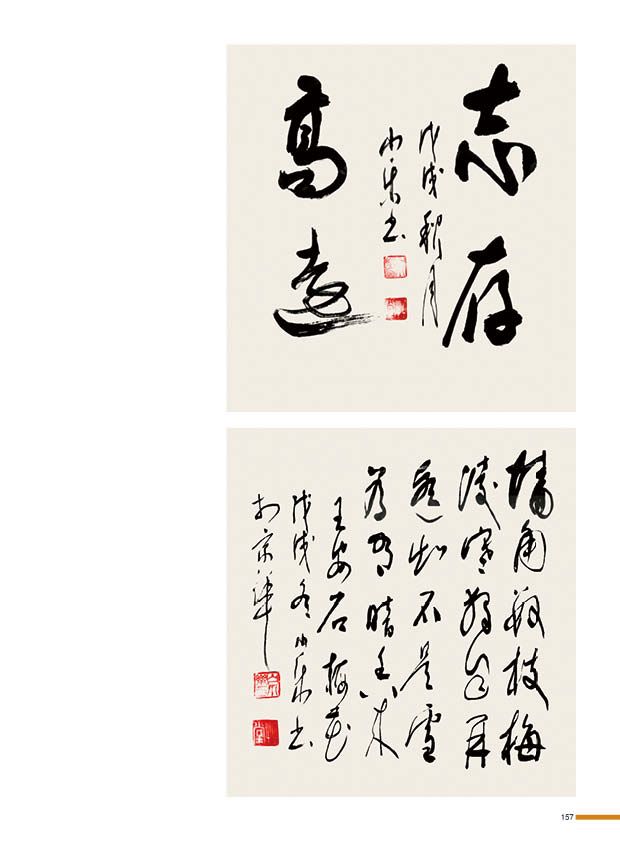 志存
高遠
戊戌秋月
小朱书
墙角数枝梅
凌寒独自开
遥知不是雪
为有暗香来
王安石梅花
戊戌冬小朱书
于京华
157